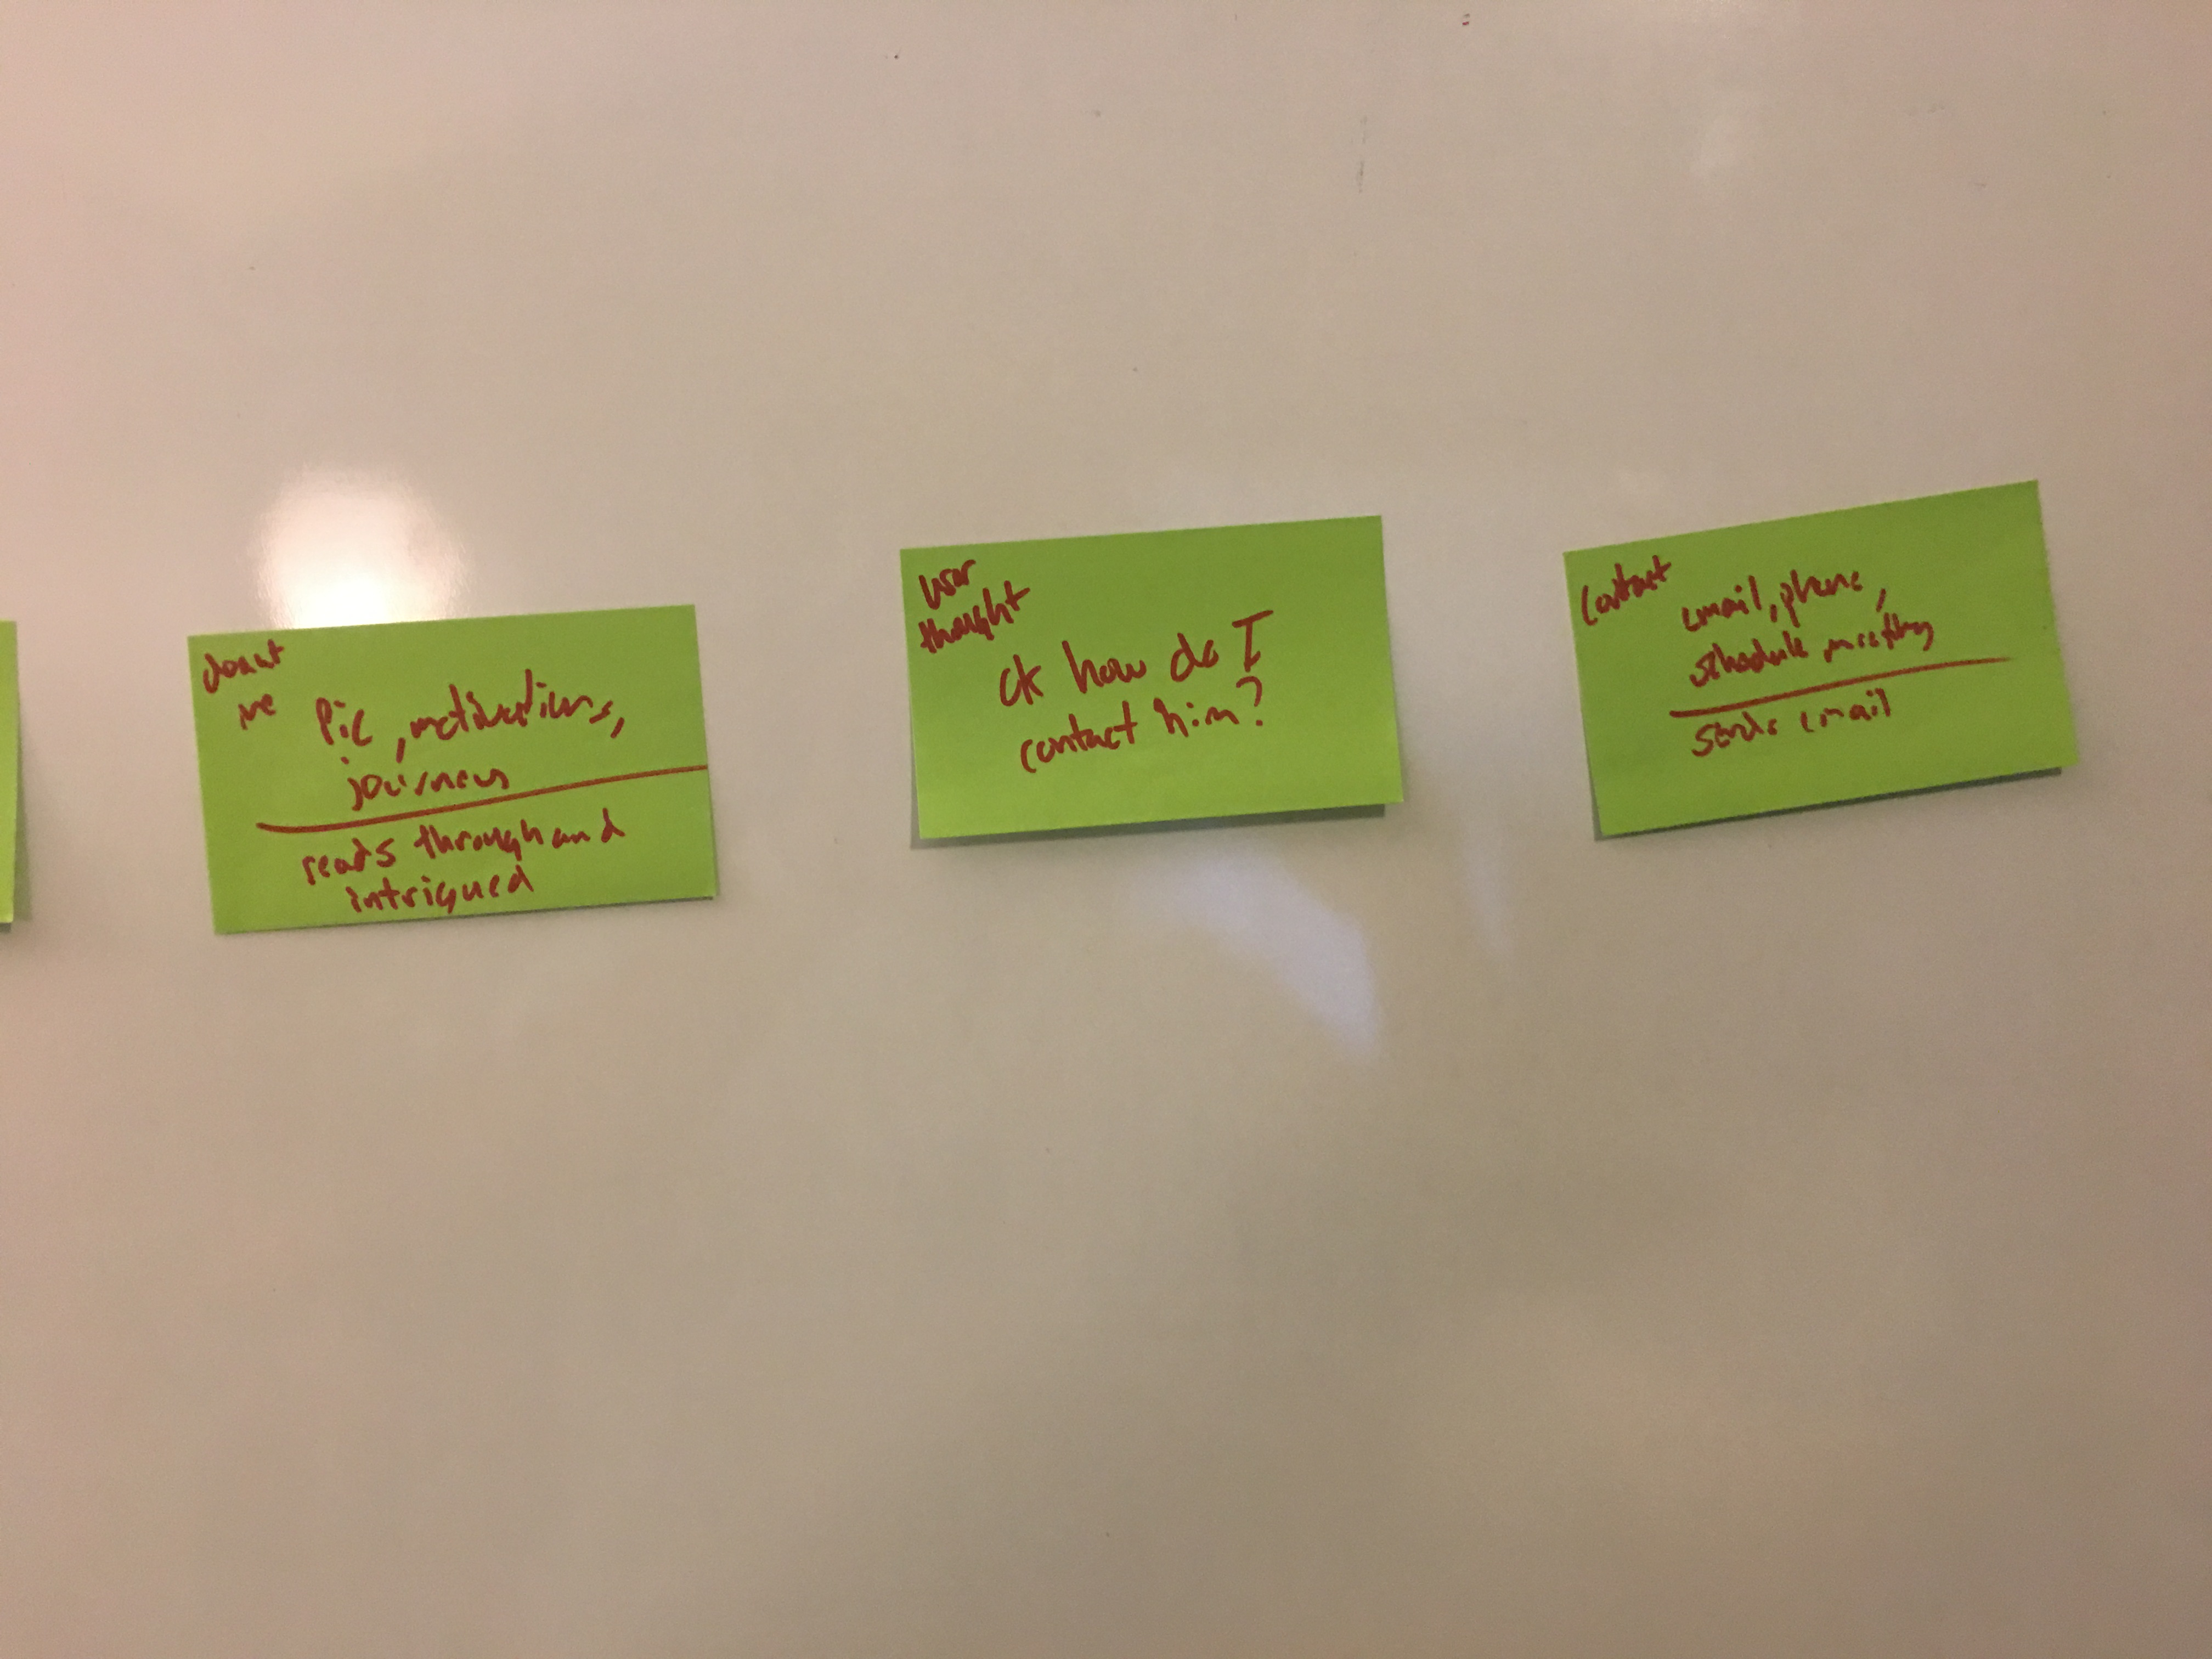 about
me
Pic, motivations,
journey
reads through and
intrigued
user
thought
ok how do I
contact him?
contact
email, phone,
schedule meeting
sends email